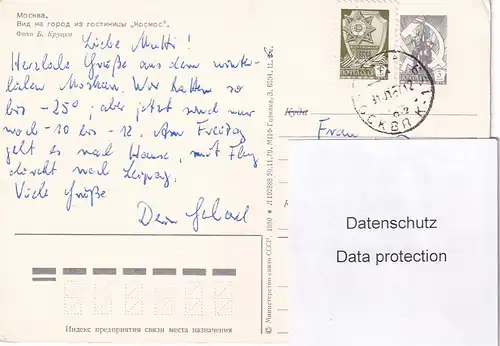 Москва.
Вид на город из гостиницы „Космос".
Фото Б. Круцко
Liebe Mutti!
Herzliche Grüße aus dem winter-
lichen Moskau. Wir hatten so
bis -25°, aber jetzt sind nur
noch -10 bis -12. Am Freitag
geht es nach Hause, mit Flug
direkt nach Leipzig.
Viele Grüße
Dein
Индекс предприятия связи места назначения
© Министерство связи СССР. 1980
Л 102888 20.11.79.
ПОЧТА СССР
МОСКВА
Куда
Frau
Datenschutz
Data protection